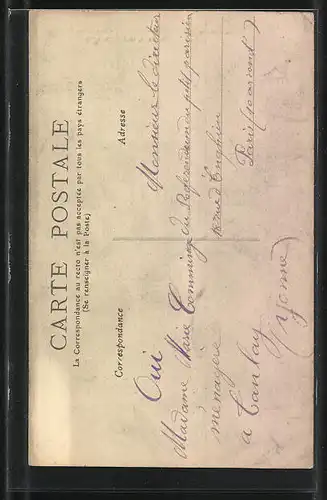 CARTE POSTALE
La Correspondance au recto n'est pas acceptée par tous les pays étrangers
(Se renseigner à la Poste)
Correspondance
Adresse
Oui
Madame Marie
ménagère
à Tanlay
(Yonne)
Monsieur le directeur
du Referendum du petit parisien
rue d'Enghien
Paris